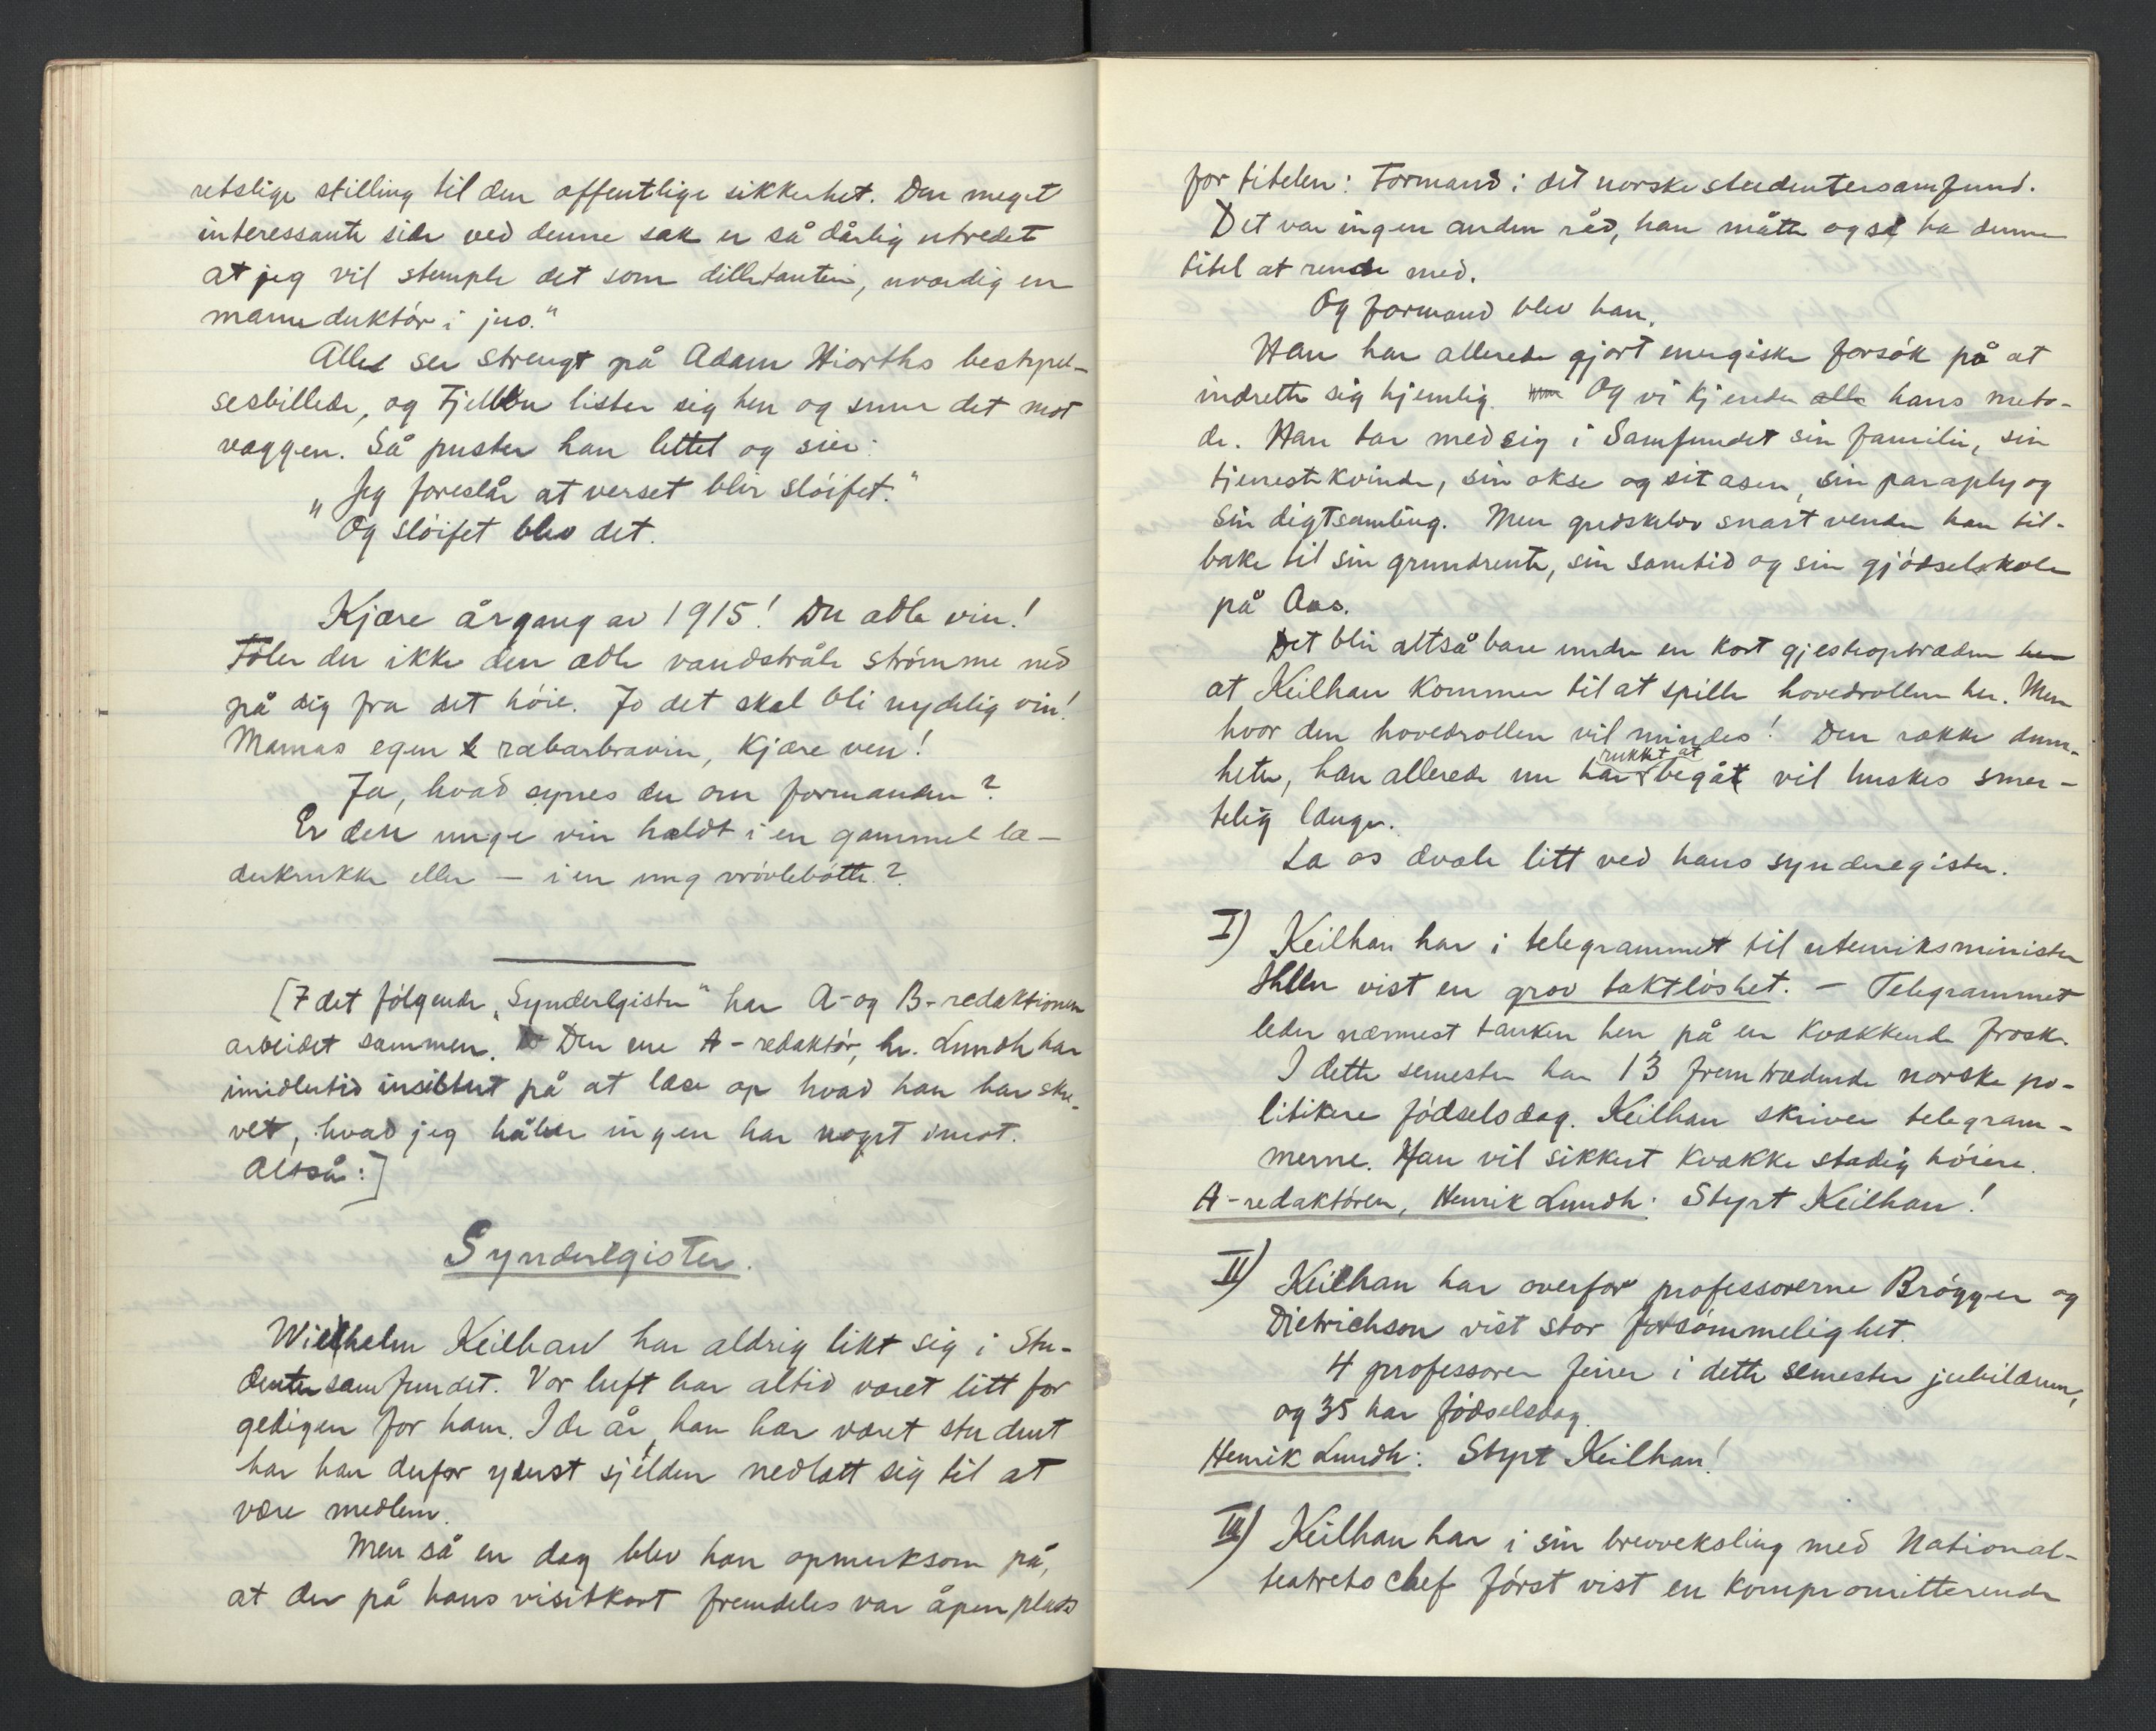 retslige stilling til den offentlige sikkerhet. Den meget
interessante side ved denne sak er så dårlig utredet
at jeg vil stemple det som dilletanteri, uværdig en
manuduktör i jus."
Alle ser strengt på Adam Hiorths bestyrel-
sesbillede, og Fjellbu lister sig hen og snur det mot
væggen. Så puster han lettet og sier:
"Jeg foreslår at verset blir slöifet."
Og slöifet blev det.
Kjære årgang av 1915! Du ædle vin!
Föler du ikke den ædle vandstråle strömme ned
på dig fra det höie. Jo det skal bli nydelig vin!
Mamas egen rabarbravin, kjære ven!
Ja, hvad synes du om formanden?
Er den unge vin hældt i en gammel læ-
derkrukke eller – i en ung vrövlebötte?
[I det fölgende "Synderegister" har A- og B-redaktionen
arbeidet sammen. Den ene A-redaktör, hr. Lundh har
imidlertid insistert på at læse op hvad han har skre-
vet, hvad jeg håber ingen har noget imot.
Altså:]
Synderegister.
Wilhelm Keilhau har aldrig likt sig i Stu-
dentersamfundet. Vor luft har altid været litt for
gedigen for ham. I de år, han har været student
har han derfor yderst sjelden nedlatt sig til at
være medlem.
Men så en dag blev han opmerksom på,
at der på hans visitkort fremdeles var åpen plads
for titelen: Formand i det norske studentersamfund.
Det var ingen anden råd, han måtte også ha denne
titel at rende med.
Og formand blev han.
Han har allerede gjort energiske forsök på at
indrette sig hjemlig. Og vi kjender alle hans meto-
de. Han tar med sig i Samfundet sin familie, sin
tjenestekvinde, sin okse og sit asen, sin paraply og
sin digtsamling. Men gudskelov snart vender han til-
bake til sin grundrente, sin samtid og sin gjödselskole
på Aas.
Det blir altså bare under en kort gjesteoptræden
at Keilhau kommer til at spille hovedrollen her. Men
hvor den hovedrollen vil mindes! Den række dum-
heter, han allerede nu har rukket at begåt vil huskes smer-
telig længe.
La os dvæle litt ved hans synderegister.
I) Keilhau har i telegrammet til utenriksminister
Ihlen vist en grov taktlöshet. – Telegrammet
leder nærmest tanken hen på en kvækkende frosk.
I dette semester har 13 fremtrædende norske po-
litikere födselsdag. Keilhau skriver telegram-
merne. Han vil sikkert kvække stadig höiere.
A-redaktören, Henrik Lundh: Styrt Keilhau!
II) Keilhau har overfor professorerne Brögger og
Dietrichson vist stor forsömmelighet.
4 professorer feirer i dette semester jubilæum,
og 35 har födselsdag.
Henrik Lundh: Styrt Keilhau!
III) Keilhau har i sin brevveksling med National-
teatrets chef först vist en kompromitterende